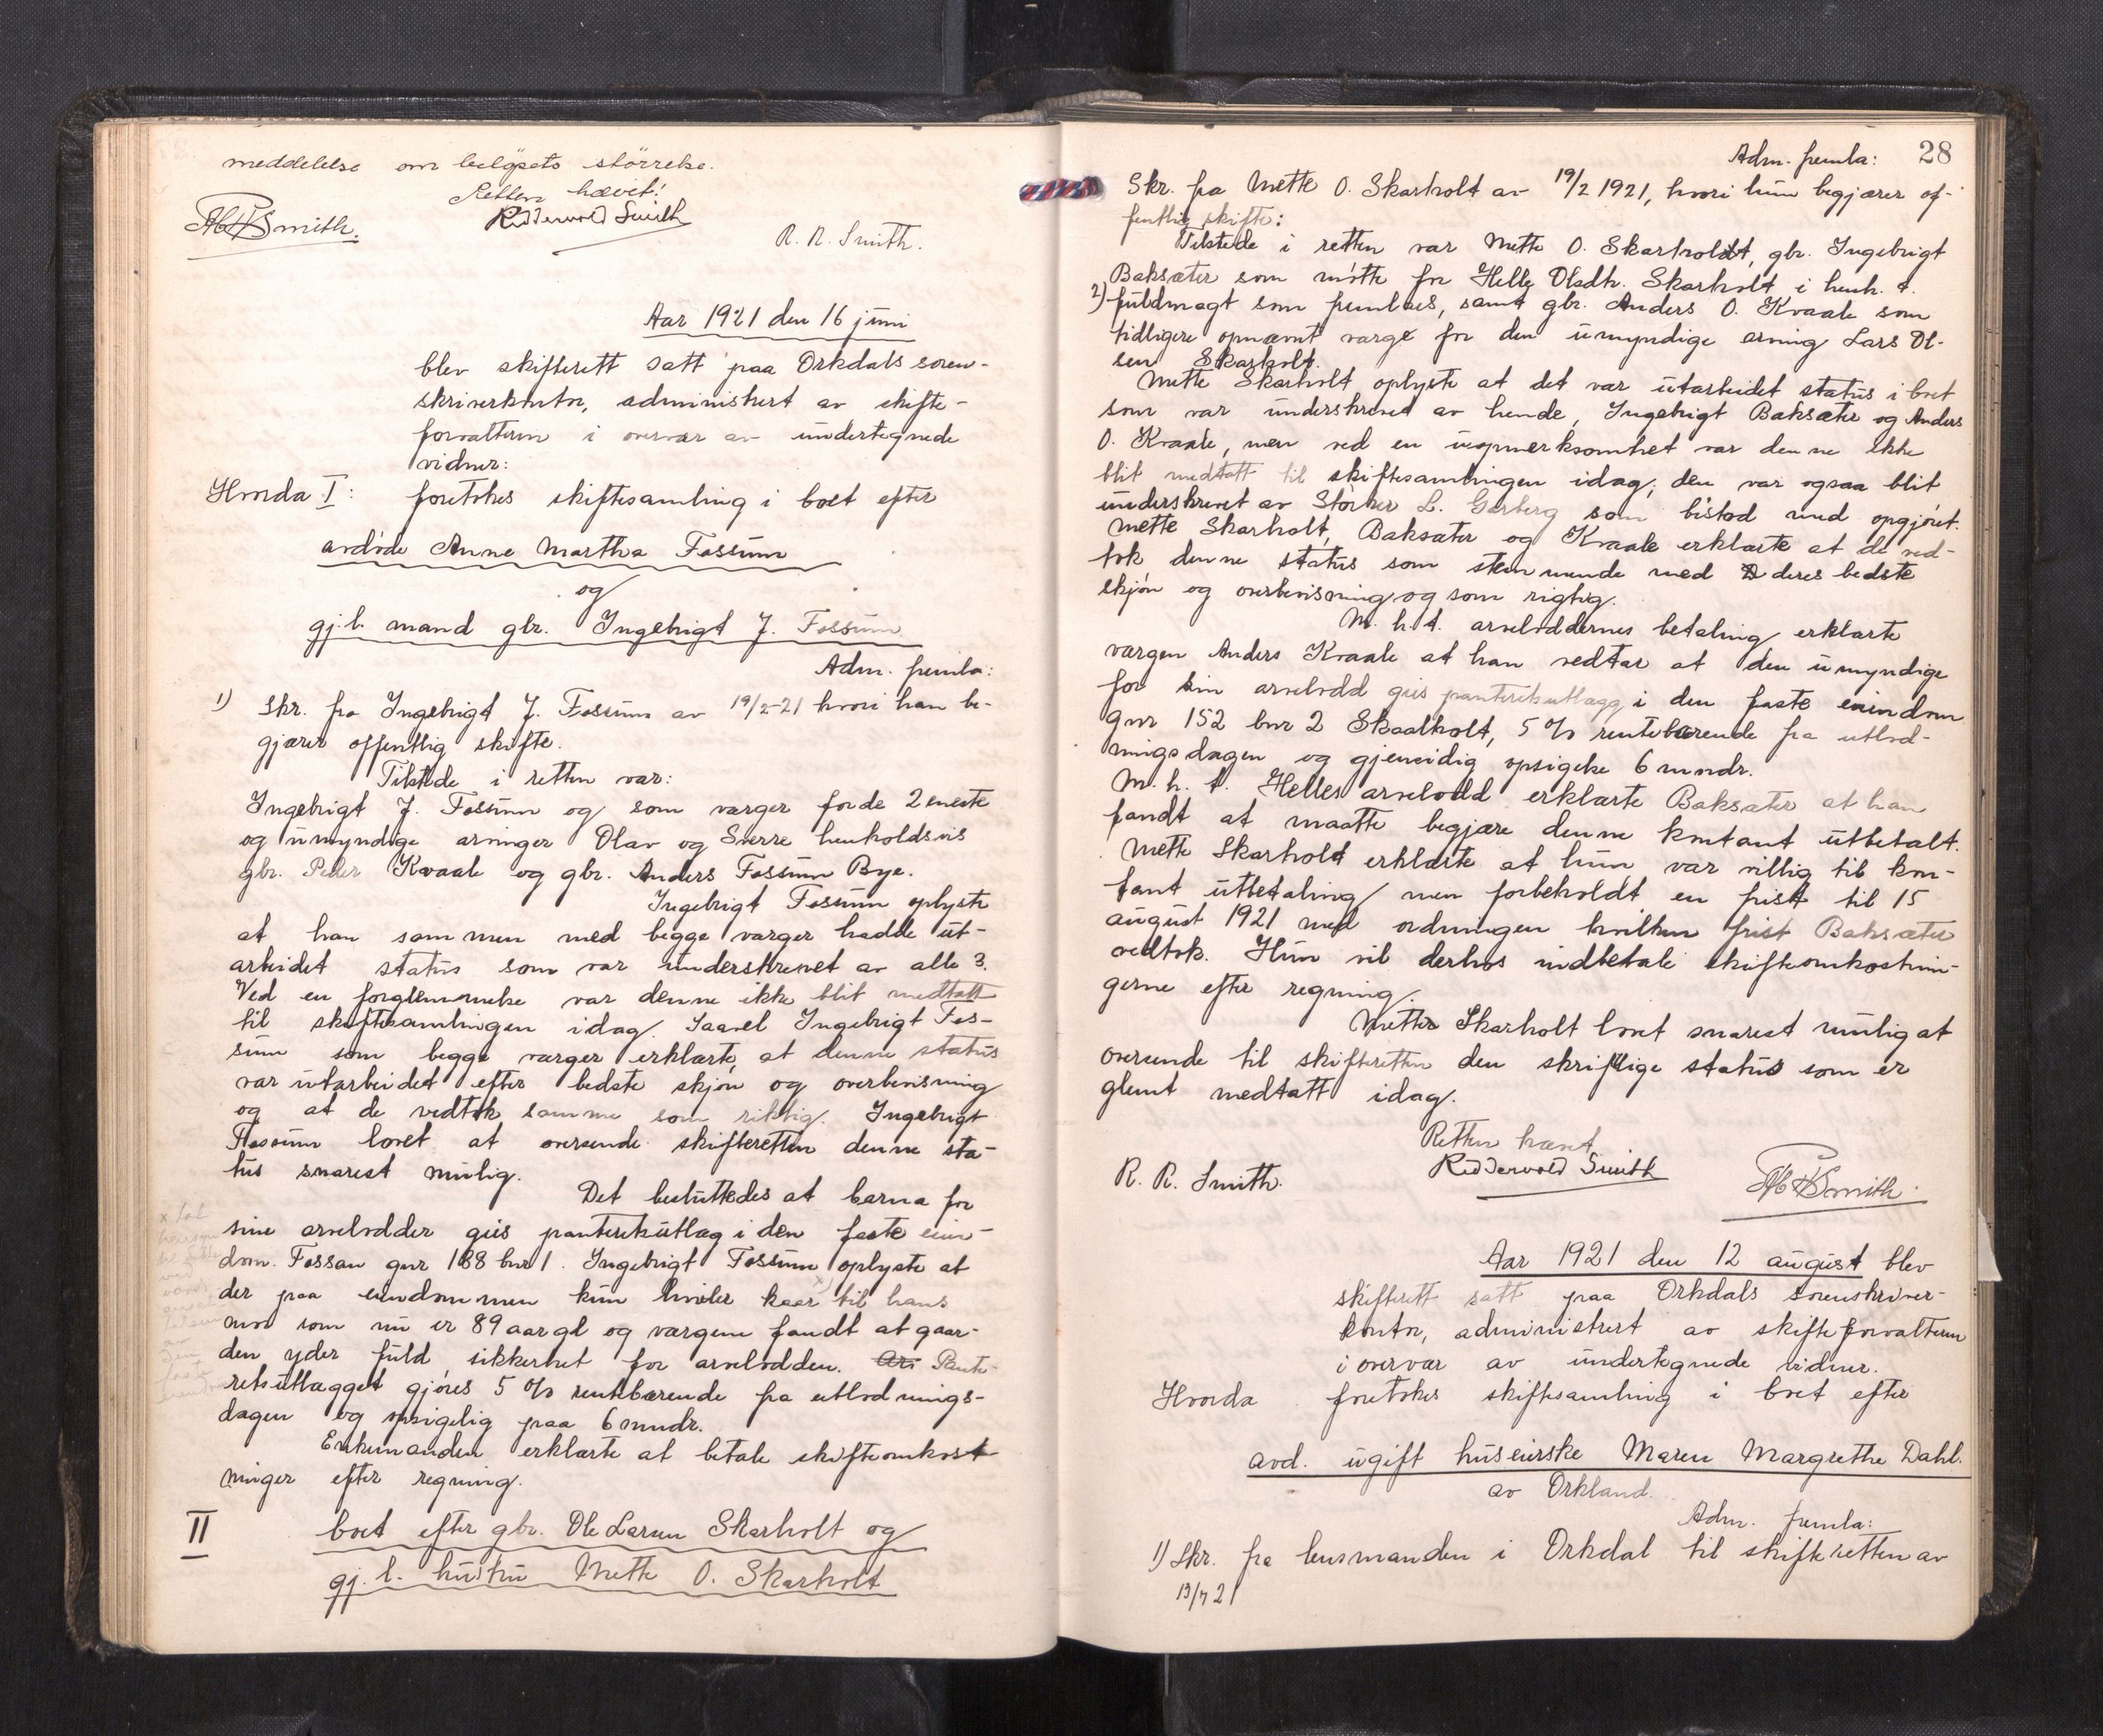 meddelelse om beløpets størrelse.
Retten hævet!
Ridderwold Smith
R. R. Smith.
Aar 1921 den 16 juni
blev skifterett satt paa Orkdals soren-
skriverkontor, administrert av skifte-
forvalteren i overvær av undertegnede
vidner:
Hvorda I: foretokes skiftesamling i boet efter
avdøde Anne Martha Fossum
og
gj.l. mand gbr. Ingebrigt J. Fossum
Adm. fremla:
1) Skr. fra Ingebrigt J. Fossum av 19/2-21 hvori han be-
gjærer offentlig skifte.
Tilstede i retten var:
Ingebrigt J. Fossum og som værger for de 2 eneste
og umyndige arvinger Olav og Sverre henholdsvis
gbr. Peder Kvaale og gbr. Anders Fossum Bye.
Ingebrigt Fossum oplyste
at han sammen med begge værger hadde ut-
arbeidet status som var underskrevet av alle 3.
Ved en forglemmelse var denne ikke blit medtatt
til skiftesamlingen idag. Saavel Ingebrigt Fos-
sum som begge værger erklærte, at denne status
var utarbeidet efter bedste skjøn og overbevisning
og at de vedtok samme som riktig. Ingebrigt
Fossum lovet at oversende skifteretten denne sta-
tus snarest mulig.
Det besluttedes at barna for
sine arvelodder gies panteretsutlæg i den faste eien-
dom. Fossan gnr 188 bnr 1. Ingebrigt Fossum oplyste at
der paa eiendommen kun hviler kaar x) til hans
mor som nu er 89 aar gl og værgene fandt at gaar-
den yder fuld sikkerhet for arvelodden. Pante-
retsutlægget gjøres 5 % rentebærende fra utlodnings-
dagen og opsigelig paa 6 mndr.
Enkemanden erklærte at betale skifteomkost-
ninger efter regning.
II boet efter gbr. Ole Larsen Skarholt og
gj.l. hustru Mette O. Skarholt
28
Adm. fremla:
Skr. fra Mette O. Skarholt av 19/2 1921, hvori hun begjærer of-
fentlig skifte:
Tilstede i retten var Mette O. Skarholdt, gbr. Ingebrigt
Baksæter som møtte for Helle Olsdtr. Skarholt i henh. t.
2) fuldmagt som fremlaes, samt gbr. Anders O. Kvaale som
tidligere opnævnt værge for den umyndige arving Lars Ol-
sen Skarholt.
Mette Skarholt oplyste at det var utarbeidet status i boet
som var underskrevet av hende, Ingebrigt Baksæter og Anders
O. Kvaale, men ved en uopmerksomhet var denne ikke
blit medtatt til skiftesamlingen idag; den var ogsaa blit
underskrevet av Størker L. Garberg som bistod med opgjøret.
Mette Skarholt, Baksæter og Kvaale erklærte at de ved-
tok denne status som stemmende med deres bedste
skjøn og overbevisning og som rigtig.
M. h. t. arveloddernes betaling erklærte
værgen Anders Kvaale at han vedtar at den umyndige
for sin arvelodd gies panteretsutlægg i den faste eiendom
gnr 152 bnr 2 Skaalholt, 5 % rentebærende fra utlod-
ningsdagen og gjensidig opsigelse 6 mndr.
M. h. t. Helles arvelodd erklærte Baksæter at han
fandt at maatte begjære denne kontant utbetalt.
Mette Skarholt erklærte at hun var villig til kon-
tant utbetaling men forbeholdt en frist til 15
august 1921 med ordningen hvilken frist Baksæter
vedtok. Hun vil derhos indbetale skifteomkostnin-
gerne efter regning.
Mette Skarholt lovet snarest mulig at
oversende til skifteretten den skriftlige status som er
glemt medtatt idag.
Retten hævet
R. R. Smith.
Ridderwold Smith
Aar 1921 den 12 august blev
skifterett satt paa Orkdals sorenskriver-
kontor, administrert av skifteforvalteren
i overvær av undertegnede vidner.
Hvorda foretokes skiftesamling i boet efter
avd. ugift huseierske Maren Margrethe Dahl.
av Orkland.
Adm. fremla:
1) Skr. fra lensmanden i Orkdal til skifteretten av
13/7 21